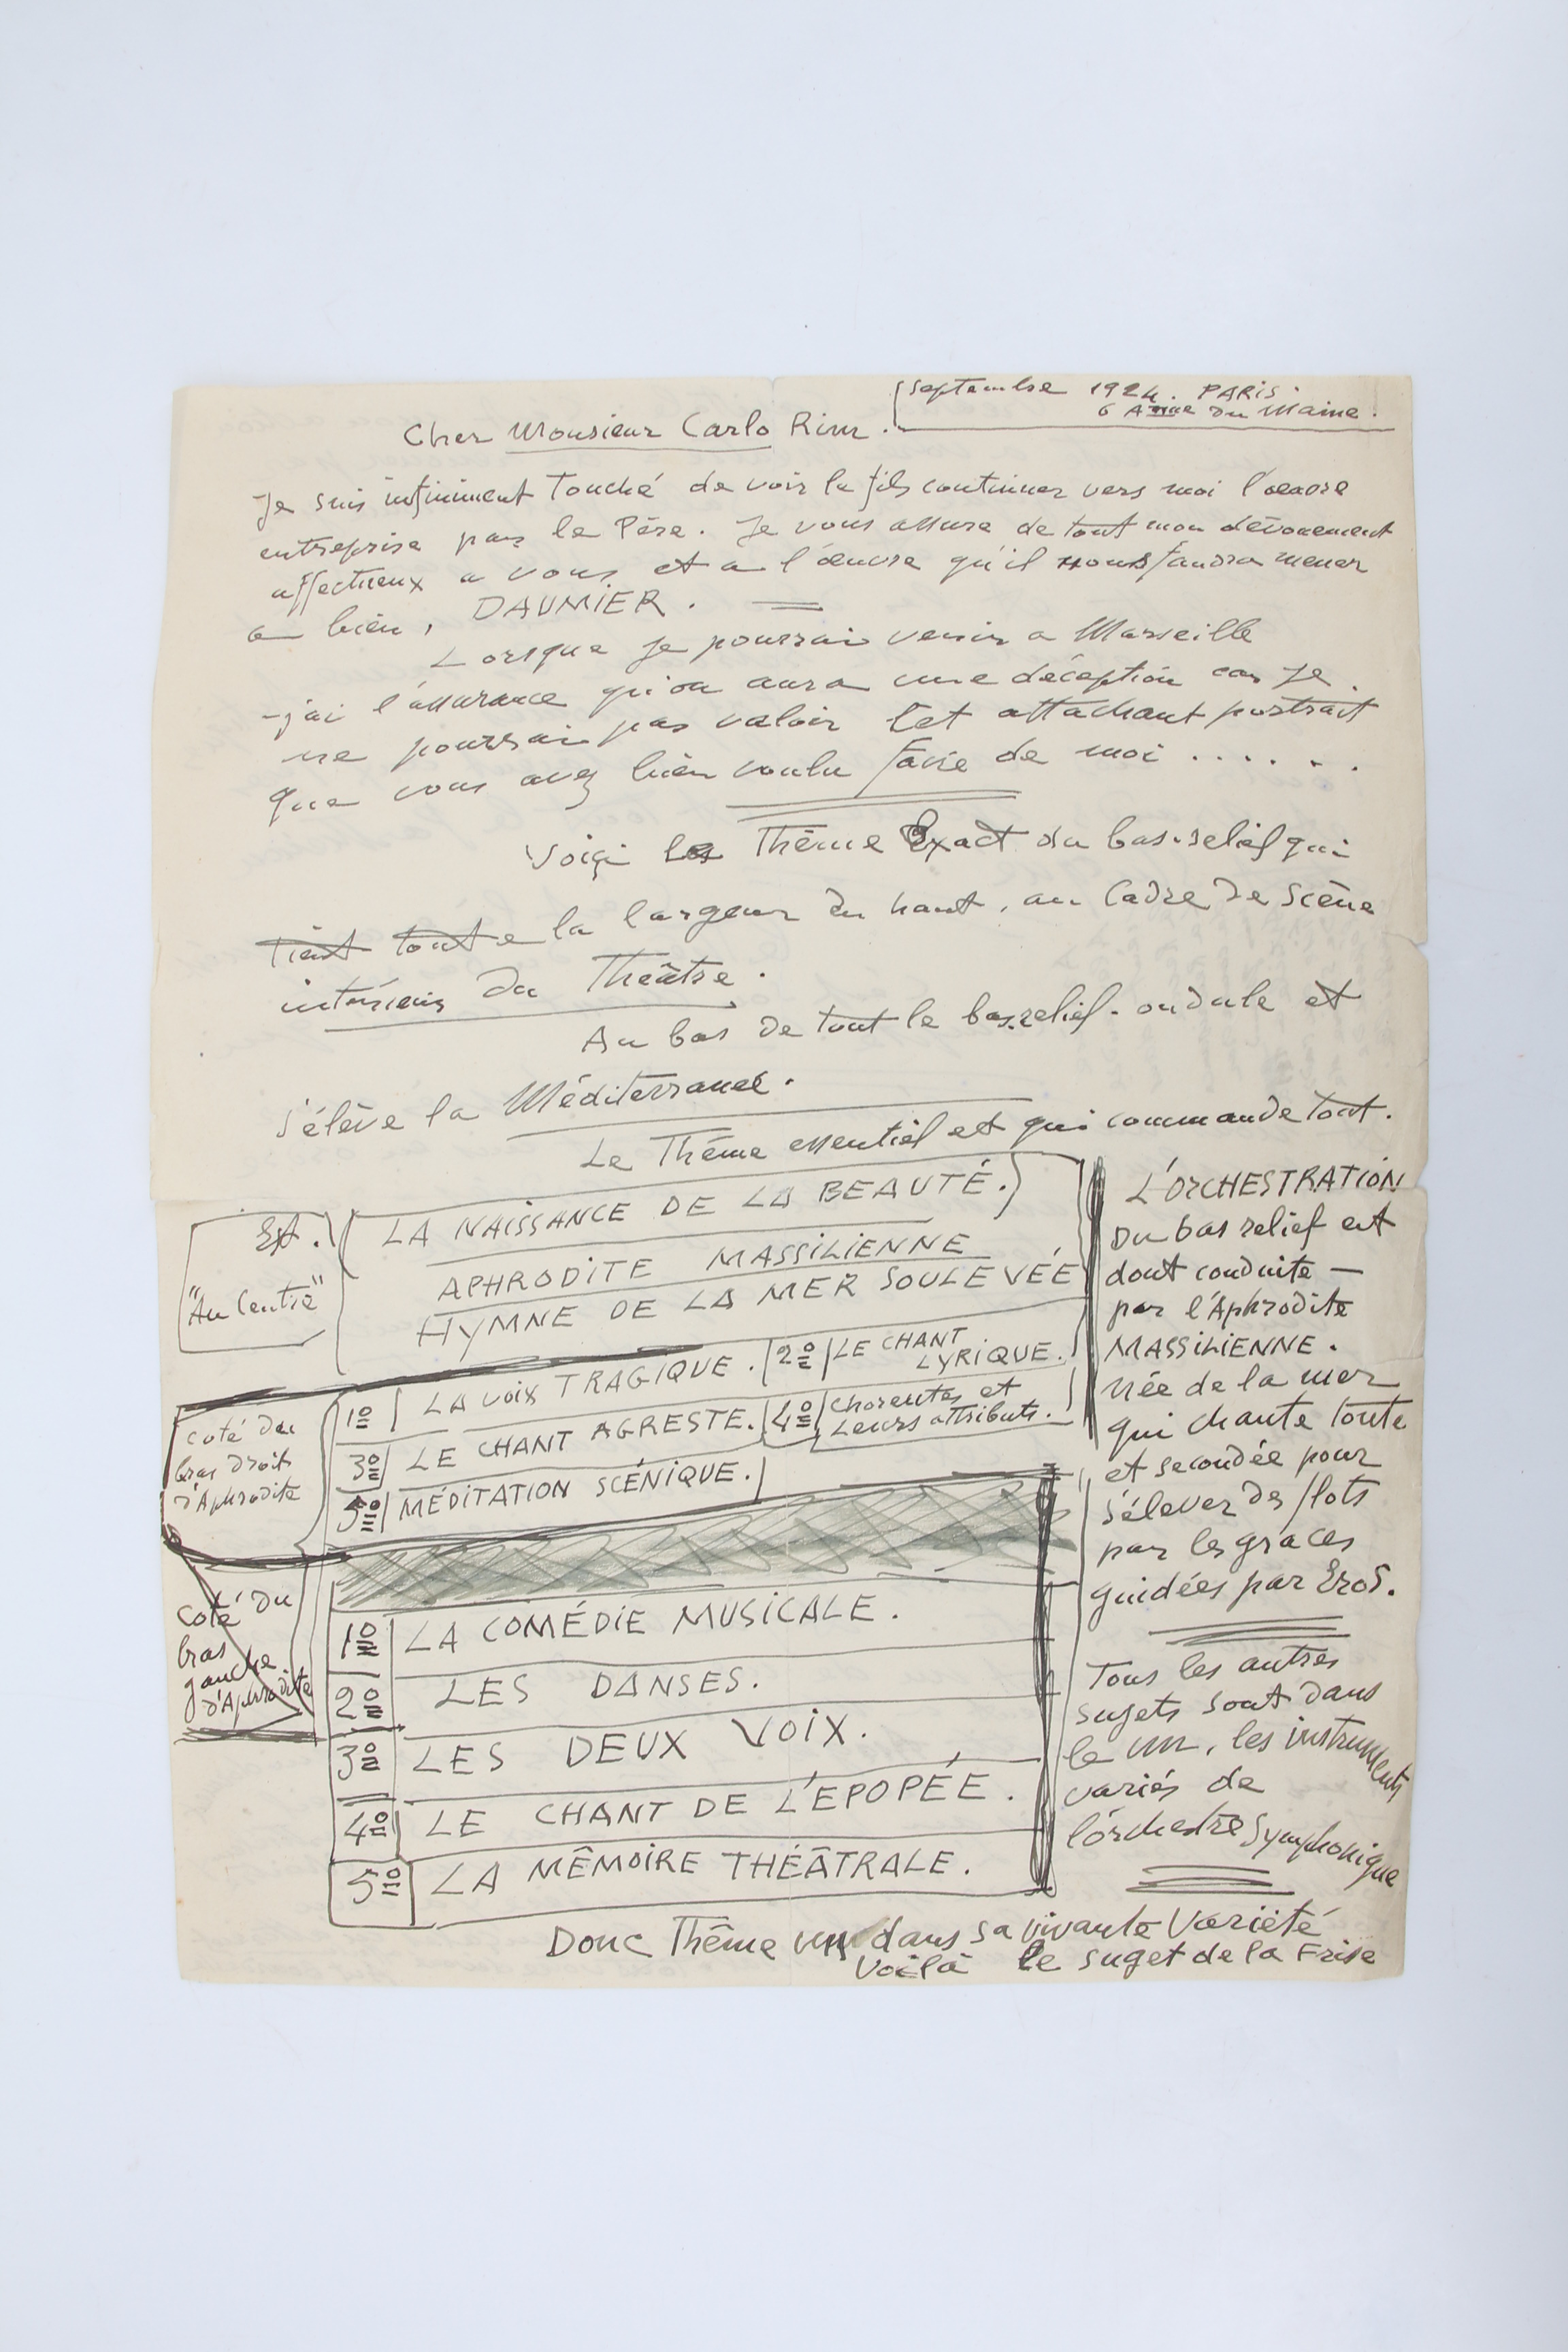 Septembre 1924. PARIS.
6 Anue du Maine.
Cher Monsieur Carlo Rim.
Je suis infiniment Touché de voir le fils continuer vers moi l'œuvre
entreprise par le Père. Je vous assure de tout mon dévouement
affectueux a vous et a l'œuvre qu'il nous faudra mener
a bien, DAUMIER.
Lorsque je pourrai venir a Marseille
-j'ai l'assurance qu'on aura une déception car je
ne pourrai pas valoir cet attachant portrait
que vous avez bien voulu faire de moi ......
Voiçi le Thême Exact du bas-relief qui
tient toute la largeur du haut, au Cadre de Scène
intérieur du Théâtre.
Au bas de tout le bas-relief. ondule et
s'élève la Méditerranée.
Le Thême essentiel est qui commande tout.
Est.
"Au Centre"
LA NAISSANCE DE LA BEAUTÉ.
APHRODITE MASSILIENNE
HYMNE DE LA MER SOULEVÉE
coté du
bras droit
d'Aphrodite
1º LA VOIX TRAGIQUE. 2º LE CHANT
LYRIQUE.
3º LE CHANT AGRESTE. 4º Choreutes et
Leurs attributs.
5º MÉDITATION SCÉNIQUE.
coté du
bras
gauche
d'Aphrodite
1º LA COMÉDIE MUSICALE.
2º LES DANSES.
3º LES DEUX VOIX.
4º LE CHANT DE L'ÉPOPÉE.
5º LA MÊMOIRE THÉÂTRALE.
L'ORCHESTRATION
Du bas relief est
dont conduite —
par l'Aphrodite
MASSILIENNE.
Née de la mer
qui chante toute
et secondée pour
s'élever des flots
par les graces
guidées par EroS.
Tous les autres
sugets sont dans
le un, les instruments
variés de
l'orchestre Symphonique
Donc Thême un dans sa vivante Variété
Voilà le suget de la Frise